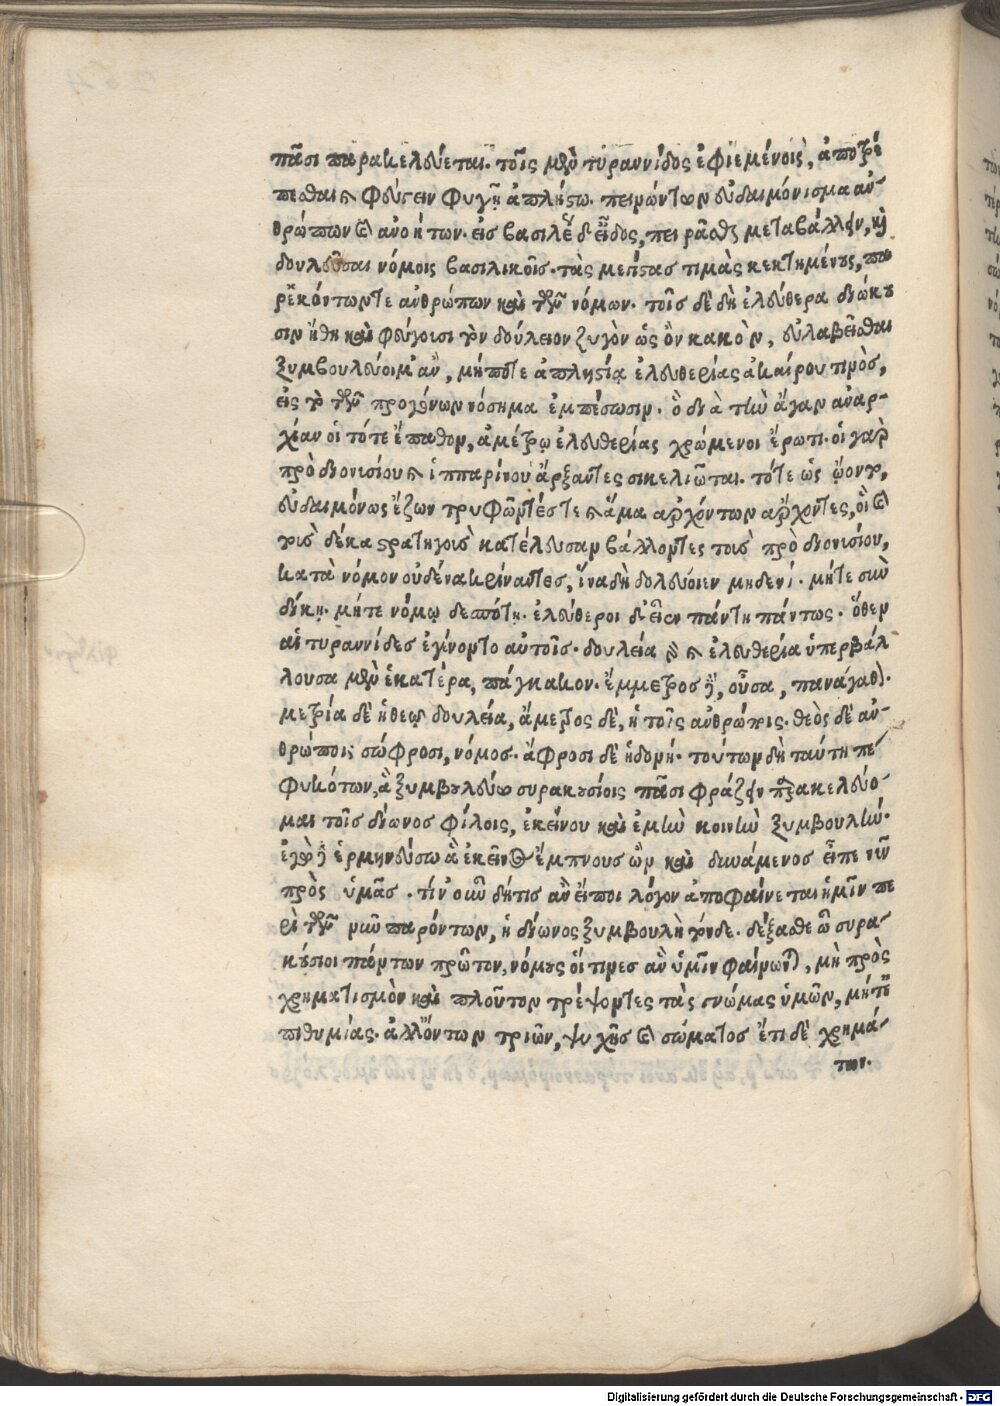 πᾶσι παρακελεύεται. τοῖς μὲν τυραννίδος ἐφιεμένοις, ἀποτρέ
πεσθαι καὶ φεύγειν φυγῇ ἀπλήστω. πεινώντων εὐδαιμόνισμα ἀν-
θρώπων καὶ ἀνοήτων. εἰς βασιλέως δ εἶδος, πειρᾶσθαι μεταβάλλειν, καὶ
δουλεῦσαι νόμοις βασιλικοῖς. τὰς μεγίστας τιμὰς κεκτημένους, πα
ρ ἑκόντων τε ἀνθρώπων καὶ τῶν νόμων. τοῖς δὲ δὴ ἐλεύθερα διώκου
σιν ἤθη καὶ φεύγουσι τὸν δούλειον ζυγὸν ὡς ὂν κακὸν, εὐλαβεῖσθαι
ξυμβουλεύοιμ ἂν, μήποτε ἀπληστίᾳ ἐλευθερίας ἀκαίρου τινὸς,
εἰς τὸ τῶν προγόνων νόσημα ἐμπέσωσιν. ὃ διὰ τὴν ἄγαν ἀναρ-
χίαν οἱ τότε ἔπαθον, ἀμέτρῳ ἐλευθερίας χρώμενοι ἔρωτι. οἱ γὰρ
πρὸ διονυσίου καὶ ἱππαρίνου ἄρξαντες σικελιῶται. τότε ὡς ᾤοντο,
εὐδαιμόνως ἔζων τρυφῶντές τε καὶ ἅμα ἀρχόντων ἄρχοντες, οἳ καὶ
τοὺς δέκα στρατηγοὺς κατέλευσαν βάλλοντες τοὺς πρὸ διονυσίου,
κατὰ νόμον οὐδένα κρίναντες, ἵνα δὴ δουλεύοιεν μηδενί. μήτε σὺν
δίκῃ. μήτε νόμῳ δεσπότῃ. ἐλεύθεροι δ εἶεν πάντη πάντως. ὅθεν
αἱ τυραννίδες ἐγένοντο αὐτοῖς. δουλεία γὰρ καὶ ἐλευθερία ὑπερβάλ
λουσα μὲν ἑκατέρα, πάγκακον. ἔμμετρος δὲ, οὖσα, πανάγαθον.
μετρία δὲ ἡ θεῷ δουλεία, ἄμετρος δὲ, ἡ τοῖς ἀνθρώποις. θεὸς δὲ ἀν-
θρώποις σώφροσι, νόμος. ἄφροσι δὲ ἡδονή. τούτων δὴ ταύτη πε-
φυκότων, ἃ ξυμβουλεύω συρακουσίοις πᾶσι φράζειν παρακελεύο-
μαι τοῖς δίωνος φίλοις, ἐκείνου καὶ ἐμὴν κοινὴν ξυμβουλήν.
ἐγὼ δὲ ἑρμηνεύσω ἃ ἐκεῖνος ἔμπνους ὢν καὶ δυνάμενος εἶπε νῦν
πρὸς ὑμᾶς. τίν οὖν δή τις ἂν εἴποι λόγον ἀποφαίνεται ἡμῖν πε
ρὶ τῶν νῦν παρόντων, ἡ δίωνος ξυμβουλὴ τόνδε. δέξασθε ὦ συρα-
κούσιοι πάντων πρῶτον, νόμους οἵ τινες ἂν ὑμῖν φαίνωνται, μὴ πρὸς
χρηματισμὸν καὶ πλοῦτον τρέψοντες τὰς γνώμας ὑμῶν, μήτ ἐ
πιθυμίας. ἀλλ ὄντων τριῶν, ψυχῆς καὶ σώματος ἔτι δὲ χρημά-
των.
Digitalisierung gefördert durch die Deutsche Forschungsgemeinschaft - DFG